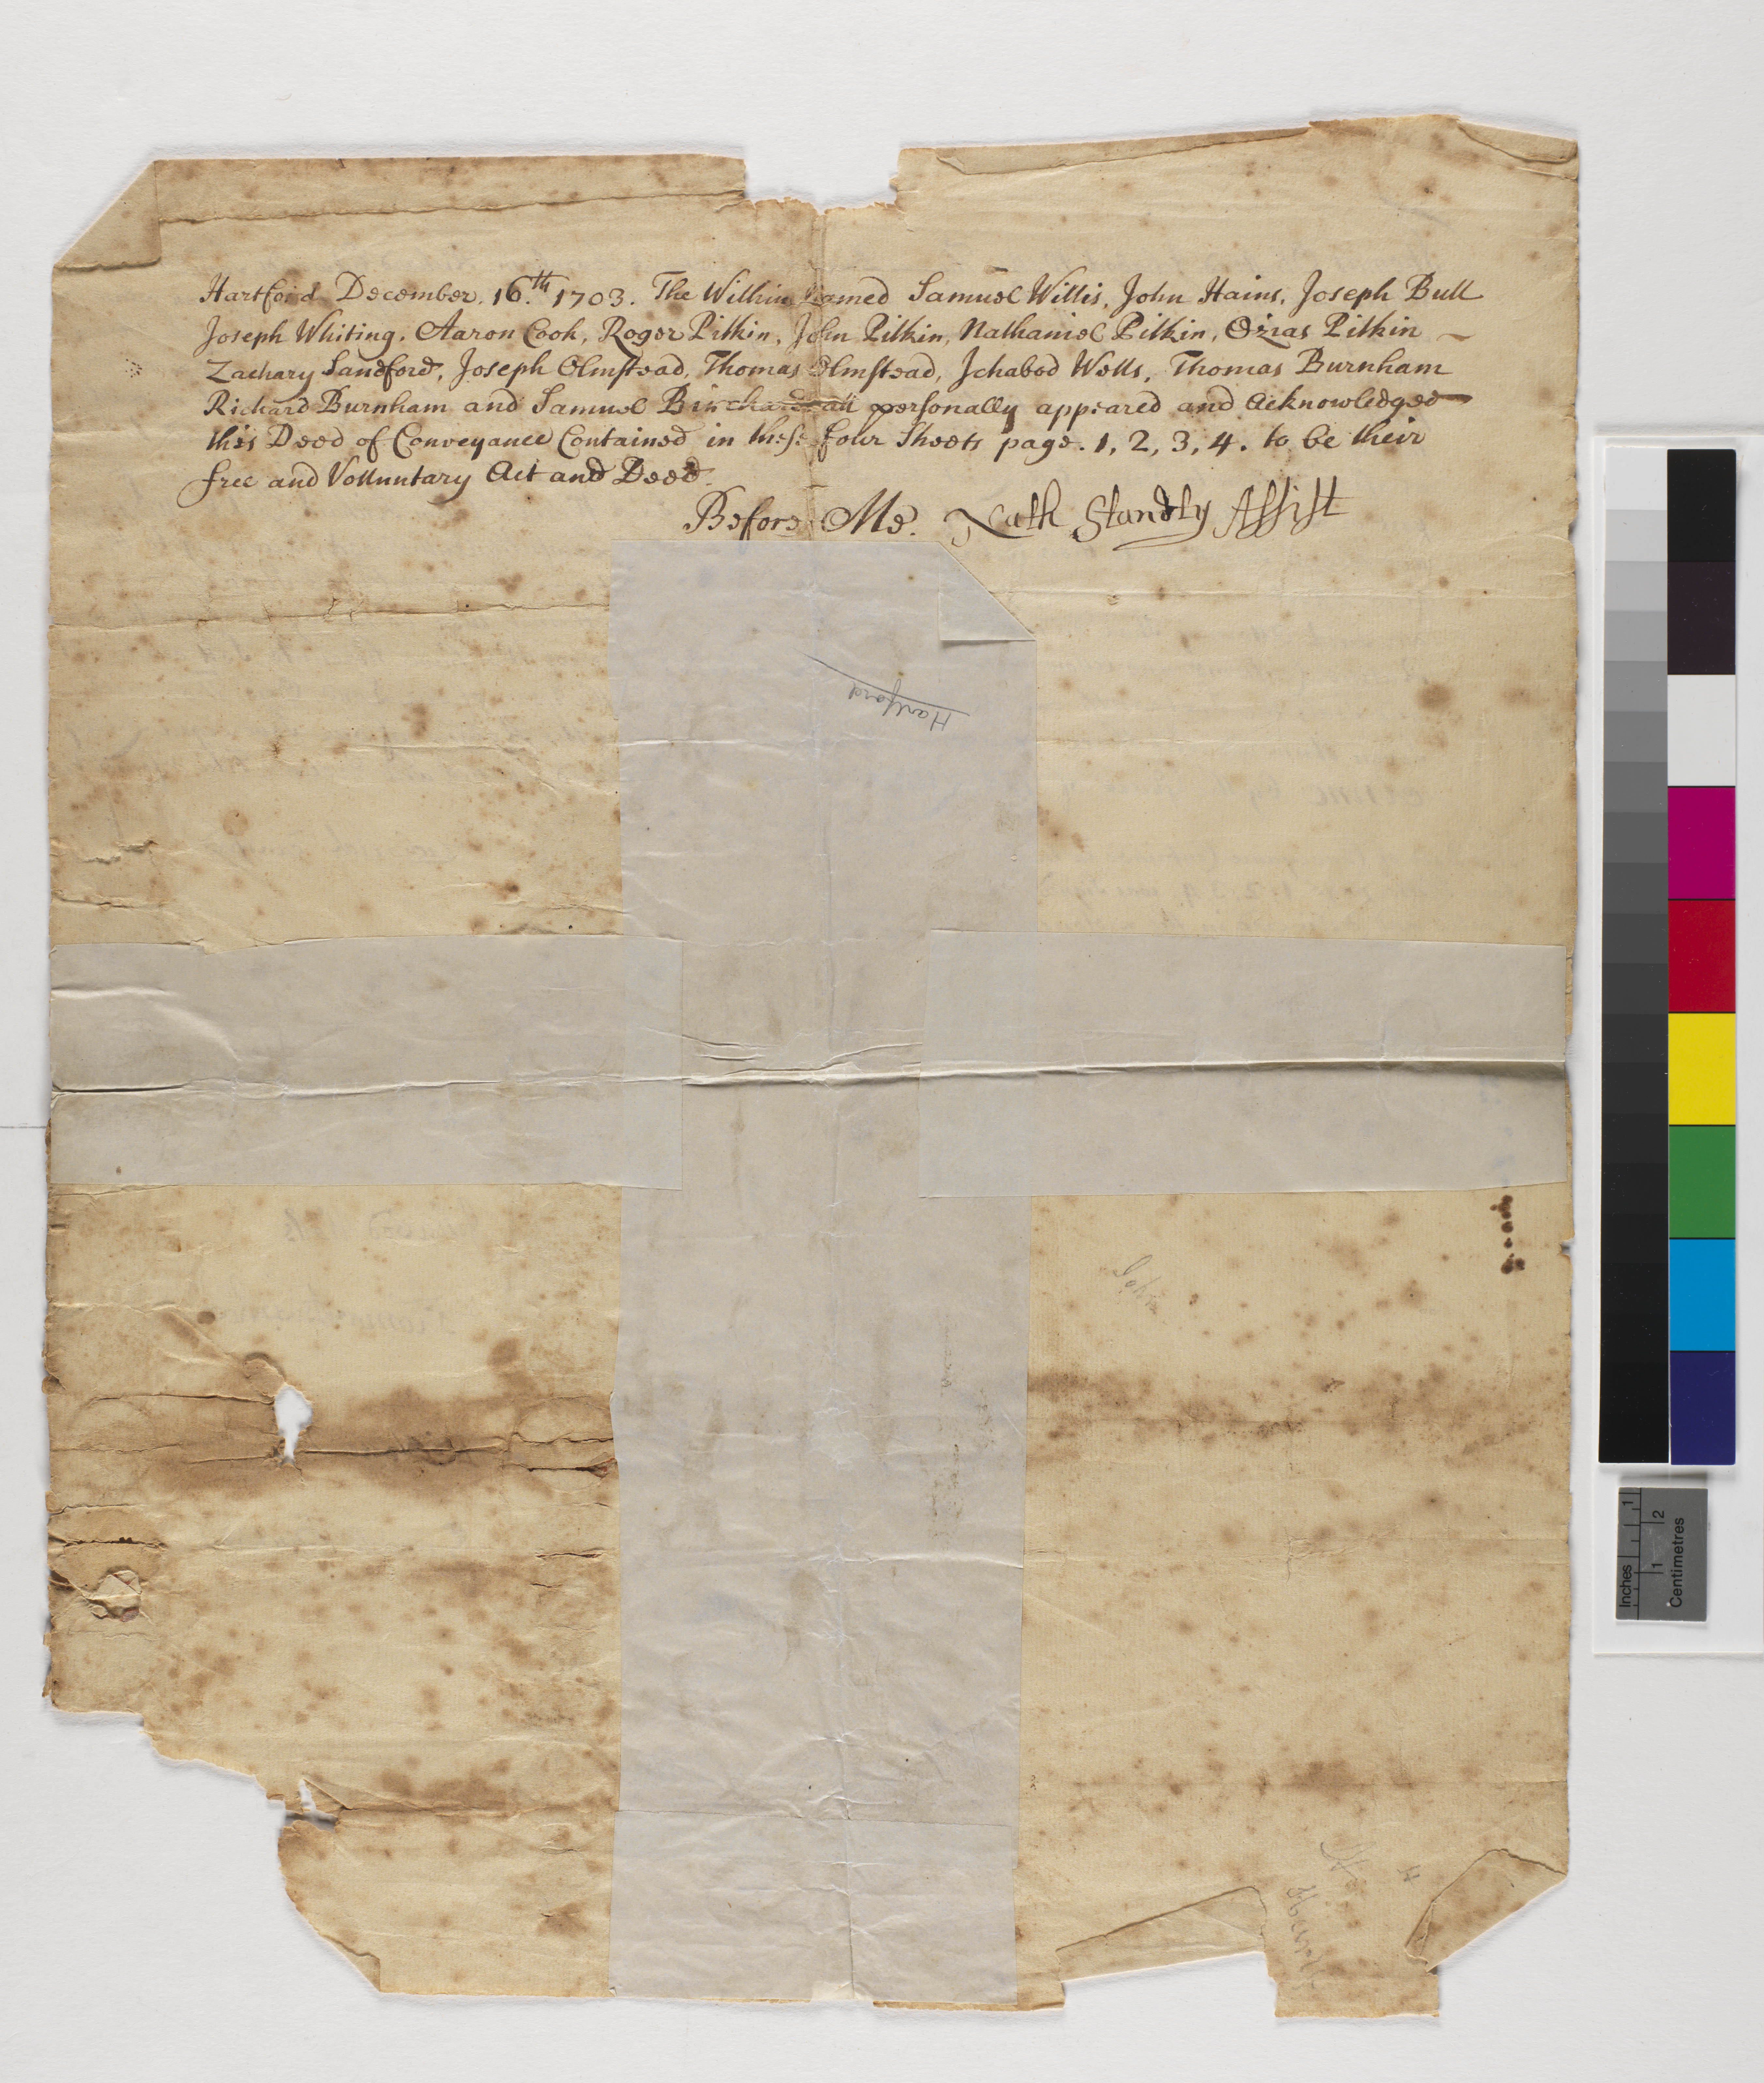 Hartford December. 16.th 1703. The Within Named Samuel Willis, John Hains, Joseph Bull
Joseph Whiting, Aaron Cook, Roger Pitkin, John Pitkin, Nathaniel Pitkin, Ozias Pitkin
Zachary Sandford, Joseph Olmstead, Thomas Olmstead, Ichabod Wells, Thomas Burnham
Richard Burnham and Samuel Burchard all personally appeared and Acknowledged
this Deed of Conveyance Contained in these four Sheets page. 1, 2, 3, 4. to be their
free and Volluntary Act and Deed.
Before Me. Nath Standly Assist
Hartford
John
Inches 1
1 2
Centimetres